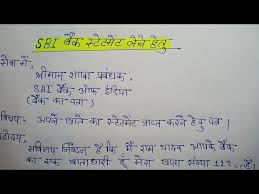 SBI बैंक स्टेटमेंट लेने हेतु
सेवा में,
श्रीमान शाखा प्रबंधक,
SBI बैंक ऑफ इंडिया
(बैंक का पता)
विषय:- अपने खाते का स्टेटमेंट प्राप्त करने हेतु पत्र।
महोदय,
सविनय निवेदन है कि मैं राम यादव आपके बैंक
का एक खाताधारी हूँ मेरा खाता संख्या 123.. है।